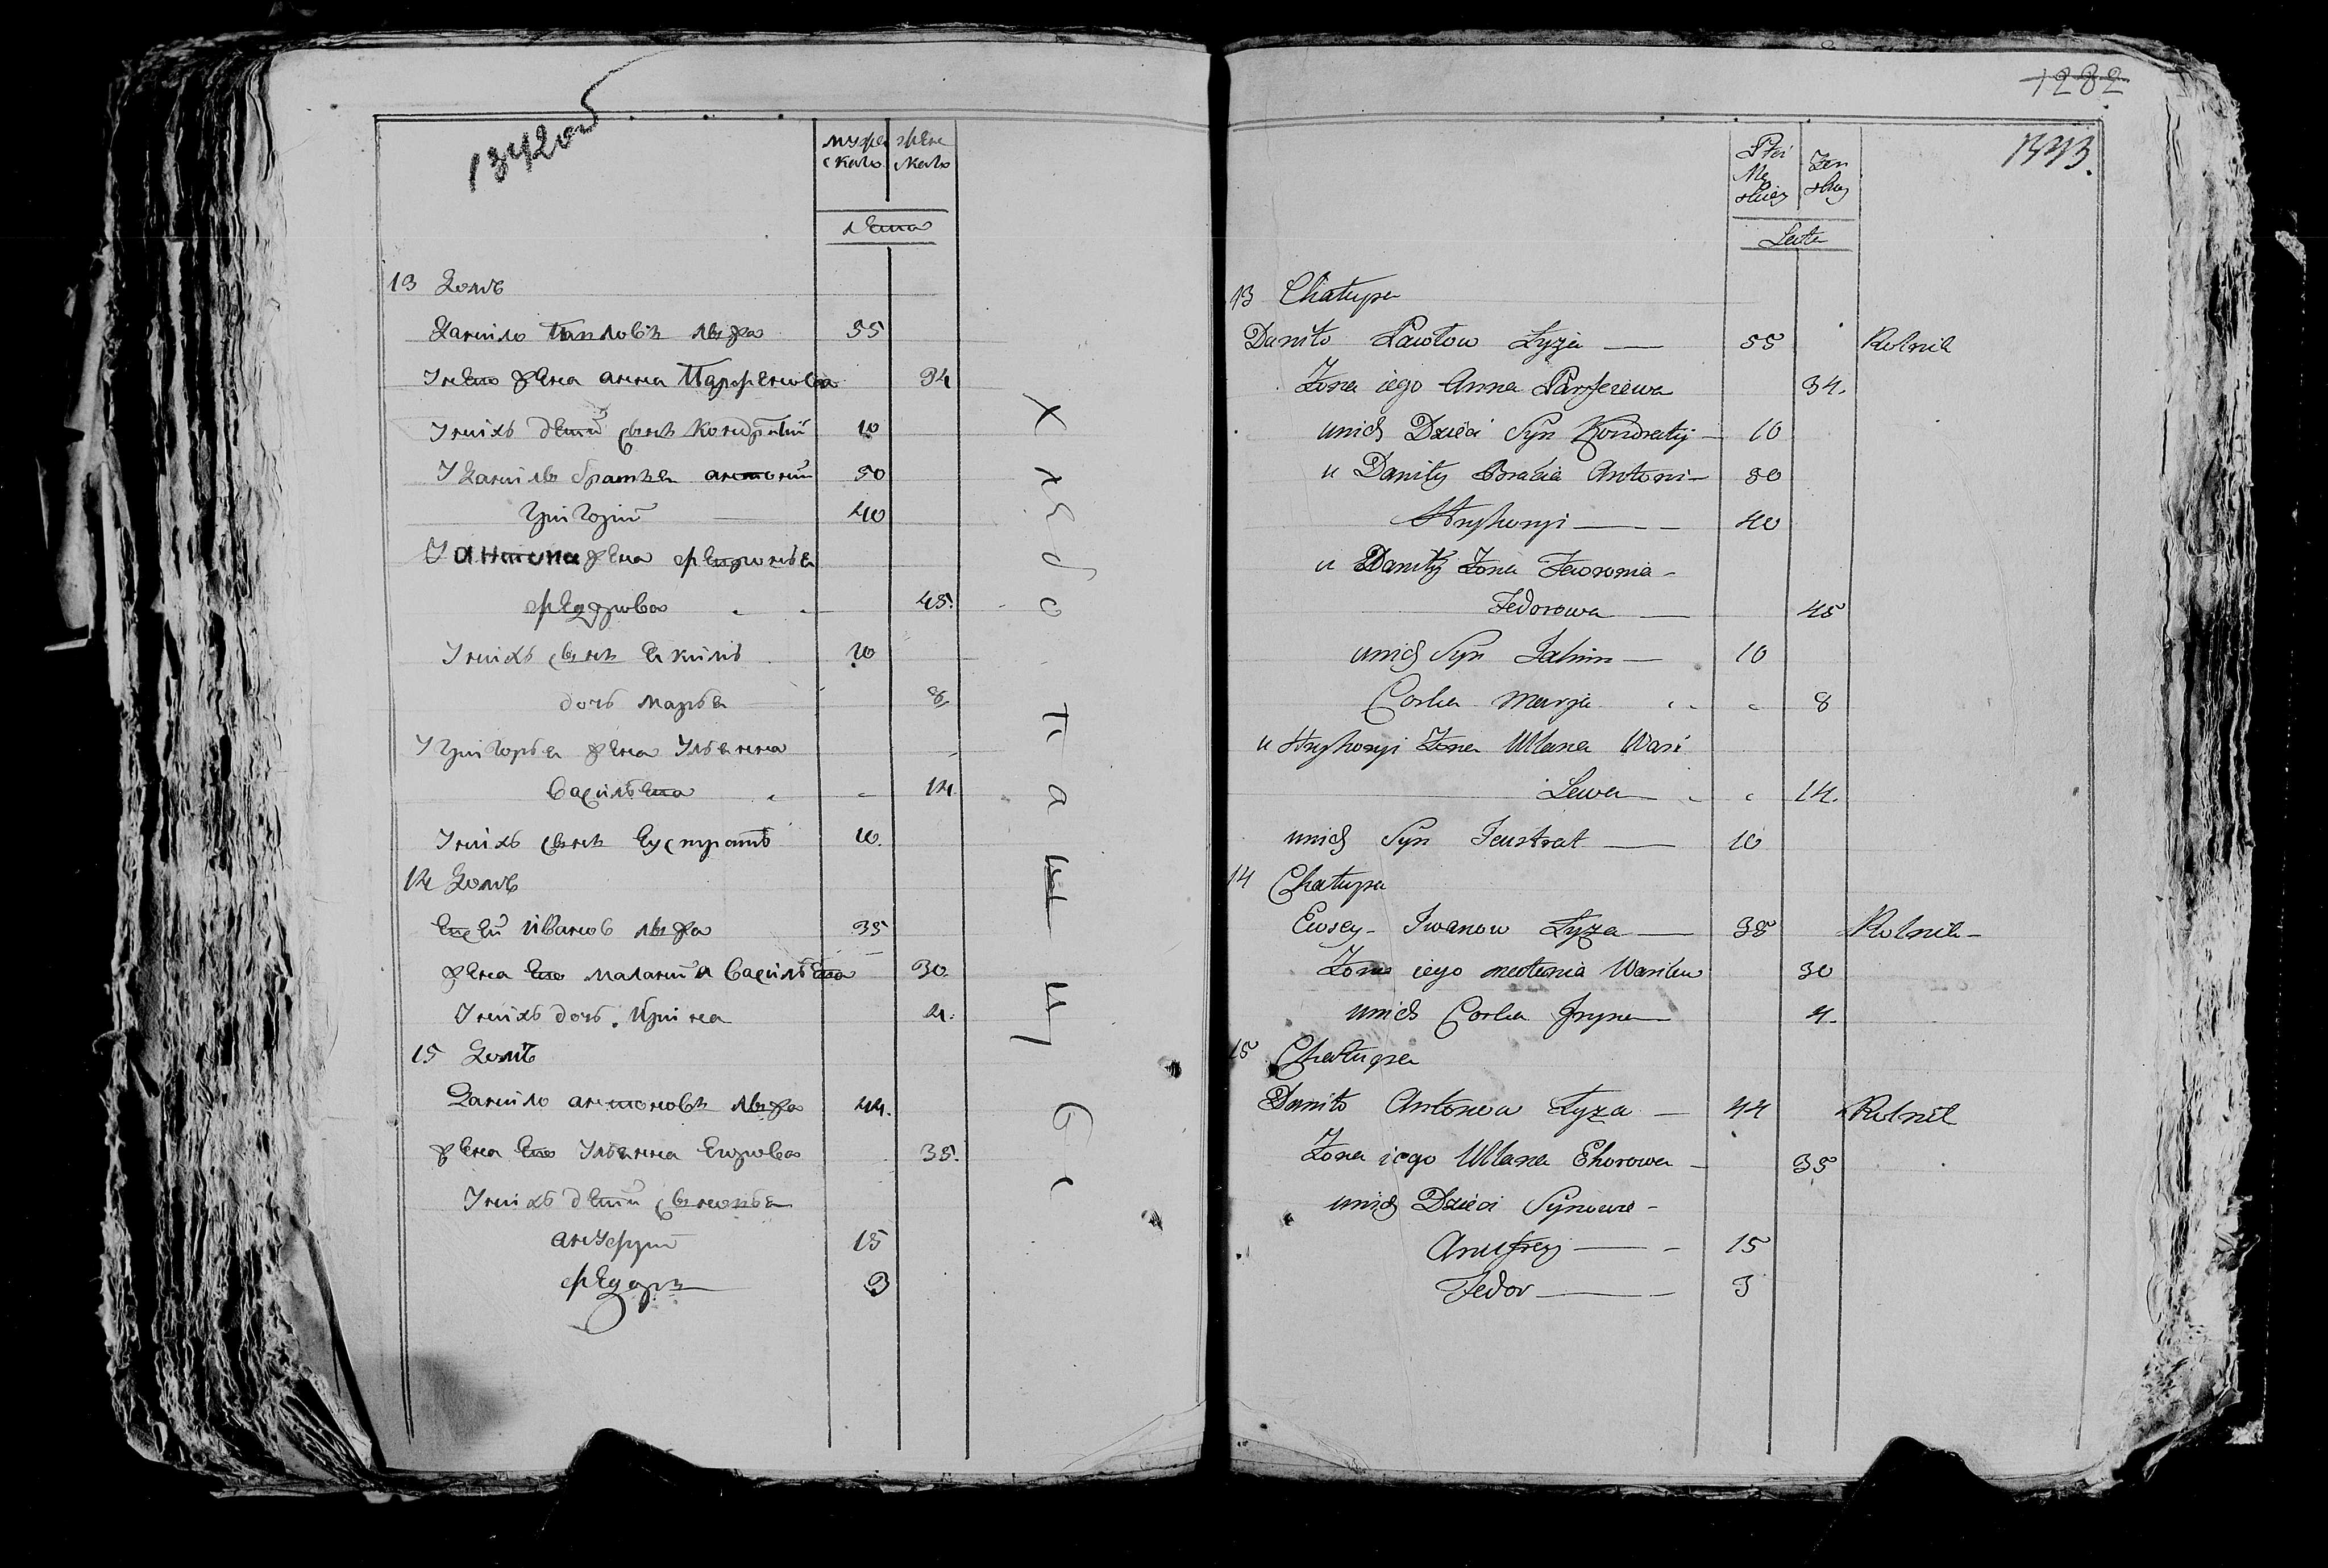 мужеска
женска
лета
13 Домъ
Данило Павловъ Лыжа 55
У нево жена анна Парфенова 34
У нихъ дети сынъ Кондратий 10
У Данилы братья антоний 50
Григорий 40
У антона жена февронья
федорова 45
У нихъ сынъ екимъ 10
дочь марья 8
У Григорья жена Ульянна
василева 14
У нихъ сынъ Еустратъ 10
14 Домъ
Евсей Иванов Лыжа 35
жена ево малания василева 30
У нихъ дочь Ирина 4
15 Домъ
Данило антоновъ Лыжа 44
жена ево Ульянна Егорова 35
У нихъ дети сыновья
ануфрий 15
федоръ 3
Х л е б о п а ш ц ы
1282
1343.
Płci Męskiey
Żenskiey
Leta
13 Chałupa
Daniło Pawłow Łyża 55 Rolnik
Żona iego Anna Parferewa 34.
u nich Dzieci Syn Kondratij 10
u Daniły Bracia Antoni 50
Hryhoryi 40
u Daniły Żona Feworonia
Fedorowa 45
u nich Syn Jakim 10
Corka Marya 8
u Hryhoryi Żona Ulana Wasi
Lewa 14.
u nich Syn Jeustrat 10
14 Chałupa
Ewsey Iwanow Łyza 35 Rolnik
Żona iego Wasilew 30
u nich Corka Iryna 4.
15 Chałupa
Daniło Antonow Łyza 44 Rolnik
Żona iego Ulana Ehorowa 35
u nich Dzieci Synowie
Anufrey 15
Fedor 3